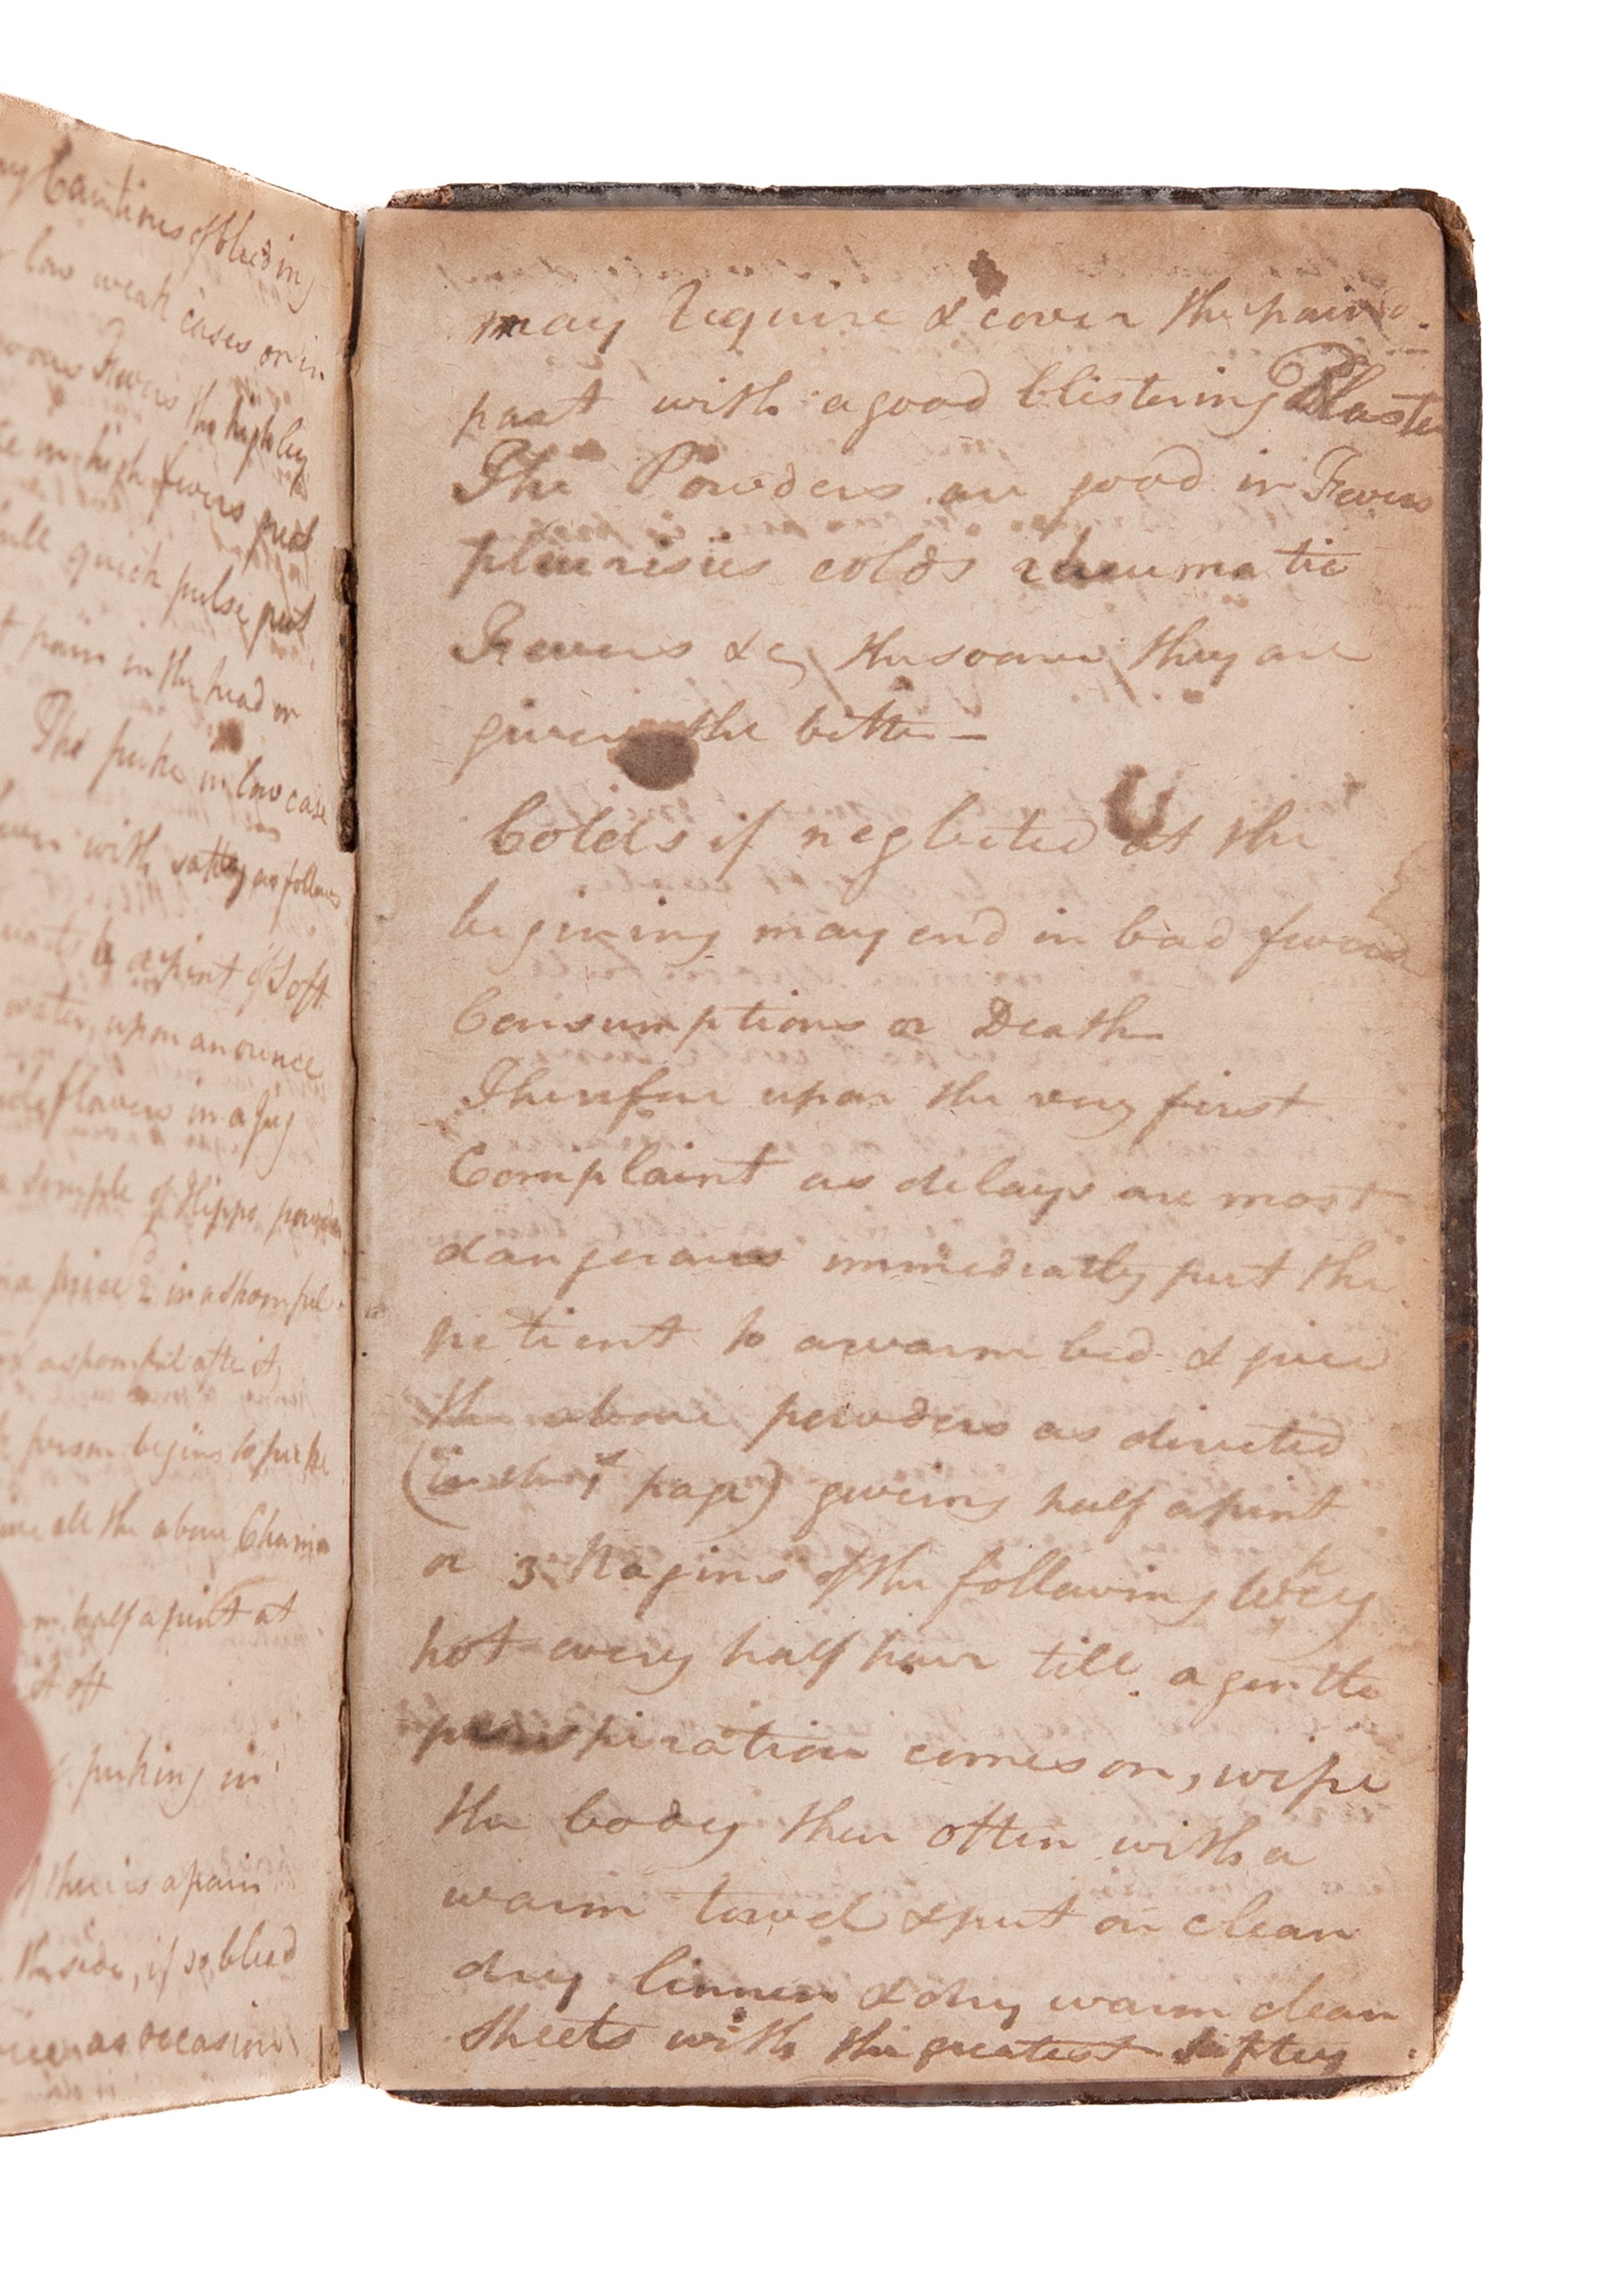 ny Cautious of bleeding
low weak cases or in
Fevers the high ley
in high fevers just
full quick pulse put
pain in the head or
The puke in low case
with as follows
a pint of Soft
water, upon an ounce
flavers in a Jug
a scruple of Hippo, powder
in a spoonful
a spoonful after it,
person begins to puke
all the above Chamo
half a pint at
it off
puking in
if there is a pain
the side, if so bleed
as occasion
may require & cover the pain'd
part with a good blistering Plaster
The Powders are good in Fevers
pleurisies colds rheumatic
Fevers &c, the sooner they are
given the better –
Colds if neglected at the
begining may end in bad fevers
Consumptions or Death
Therefore upon the very first
Complaint as delays are most
dangerous immediatly put the
petient to a warm bed & give
the above powders as directed
(in the 1st page) giveing half a pint
or 3 Nagins of the following Whey
hot every half hour till a gentle
perspiration comes on, wipe
the body then often with a
warm towel & put on clean
dry linnen & dry warm clean
sheets with the greatest safety